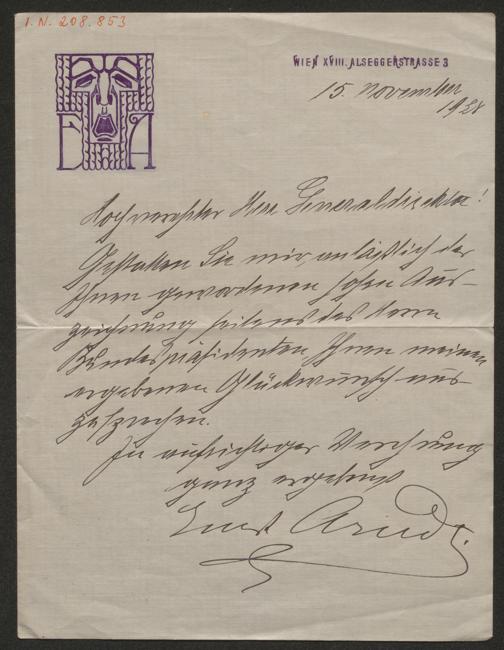 I.N. 208.853
WIEN XVIII. ALSEGGERSTRASSE 3
15. November
E A
Hochverehrter Herr Generaldirektor!
Gestatten Sie mir, anläßlich der
Ihnen gewordenen hohen Aus-
zeichnung seitens des Herrn
Bundespräsidenten, Ihnen meinen
ergebenen Glückwunsch aus-
zusprechen.
In aufrichtiger Verehrung
ganz ergebenst
Ernst Arndt